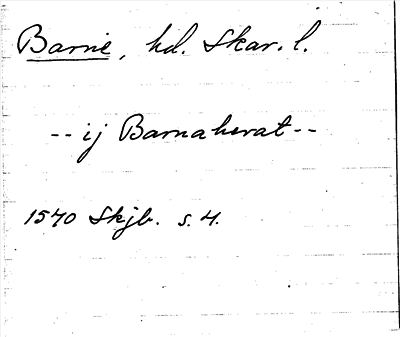 Barne, hd. Skar. l.
-- ij Barnaherat --
1540 Skjb. s. 4.